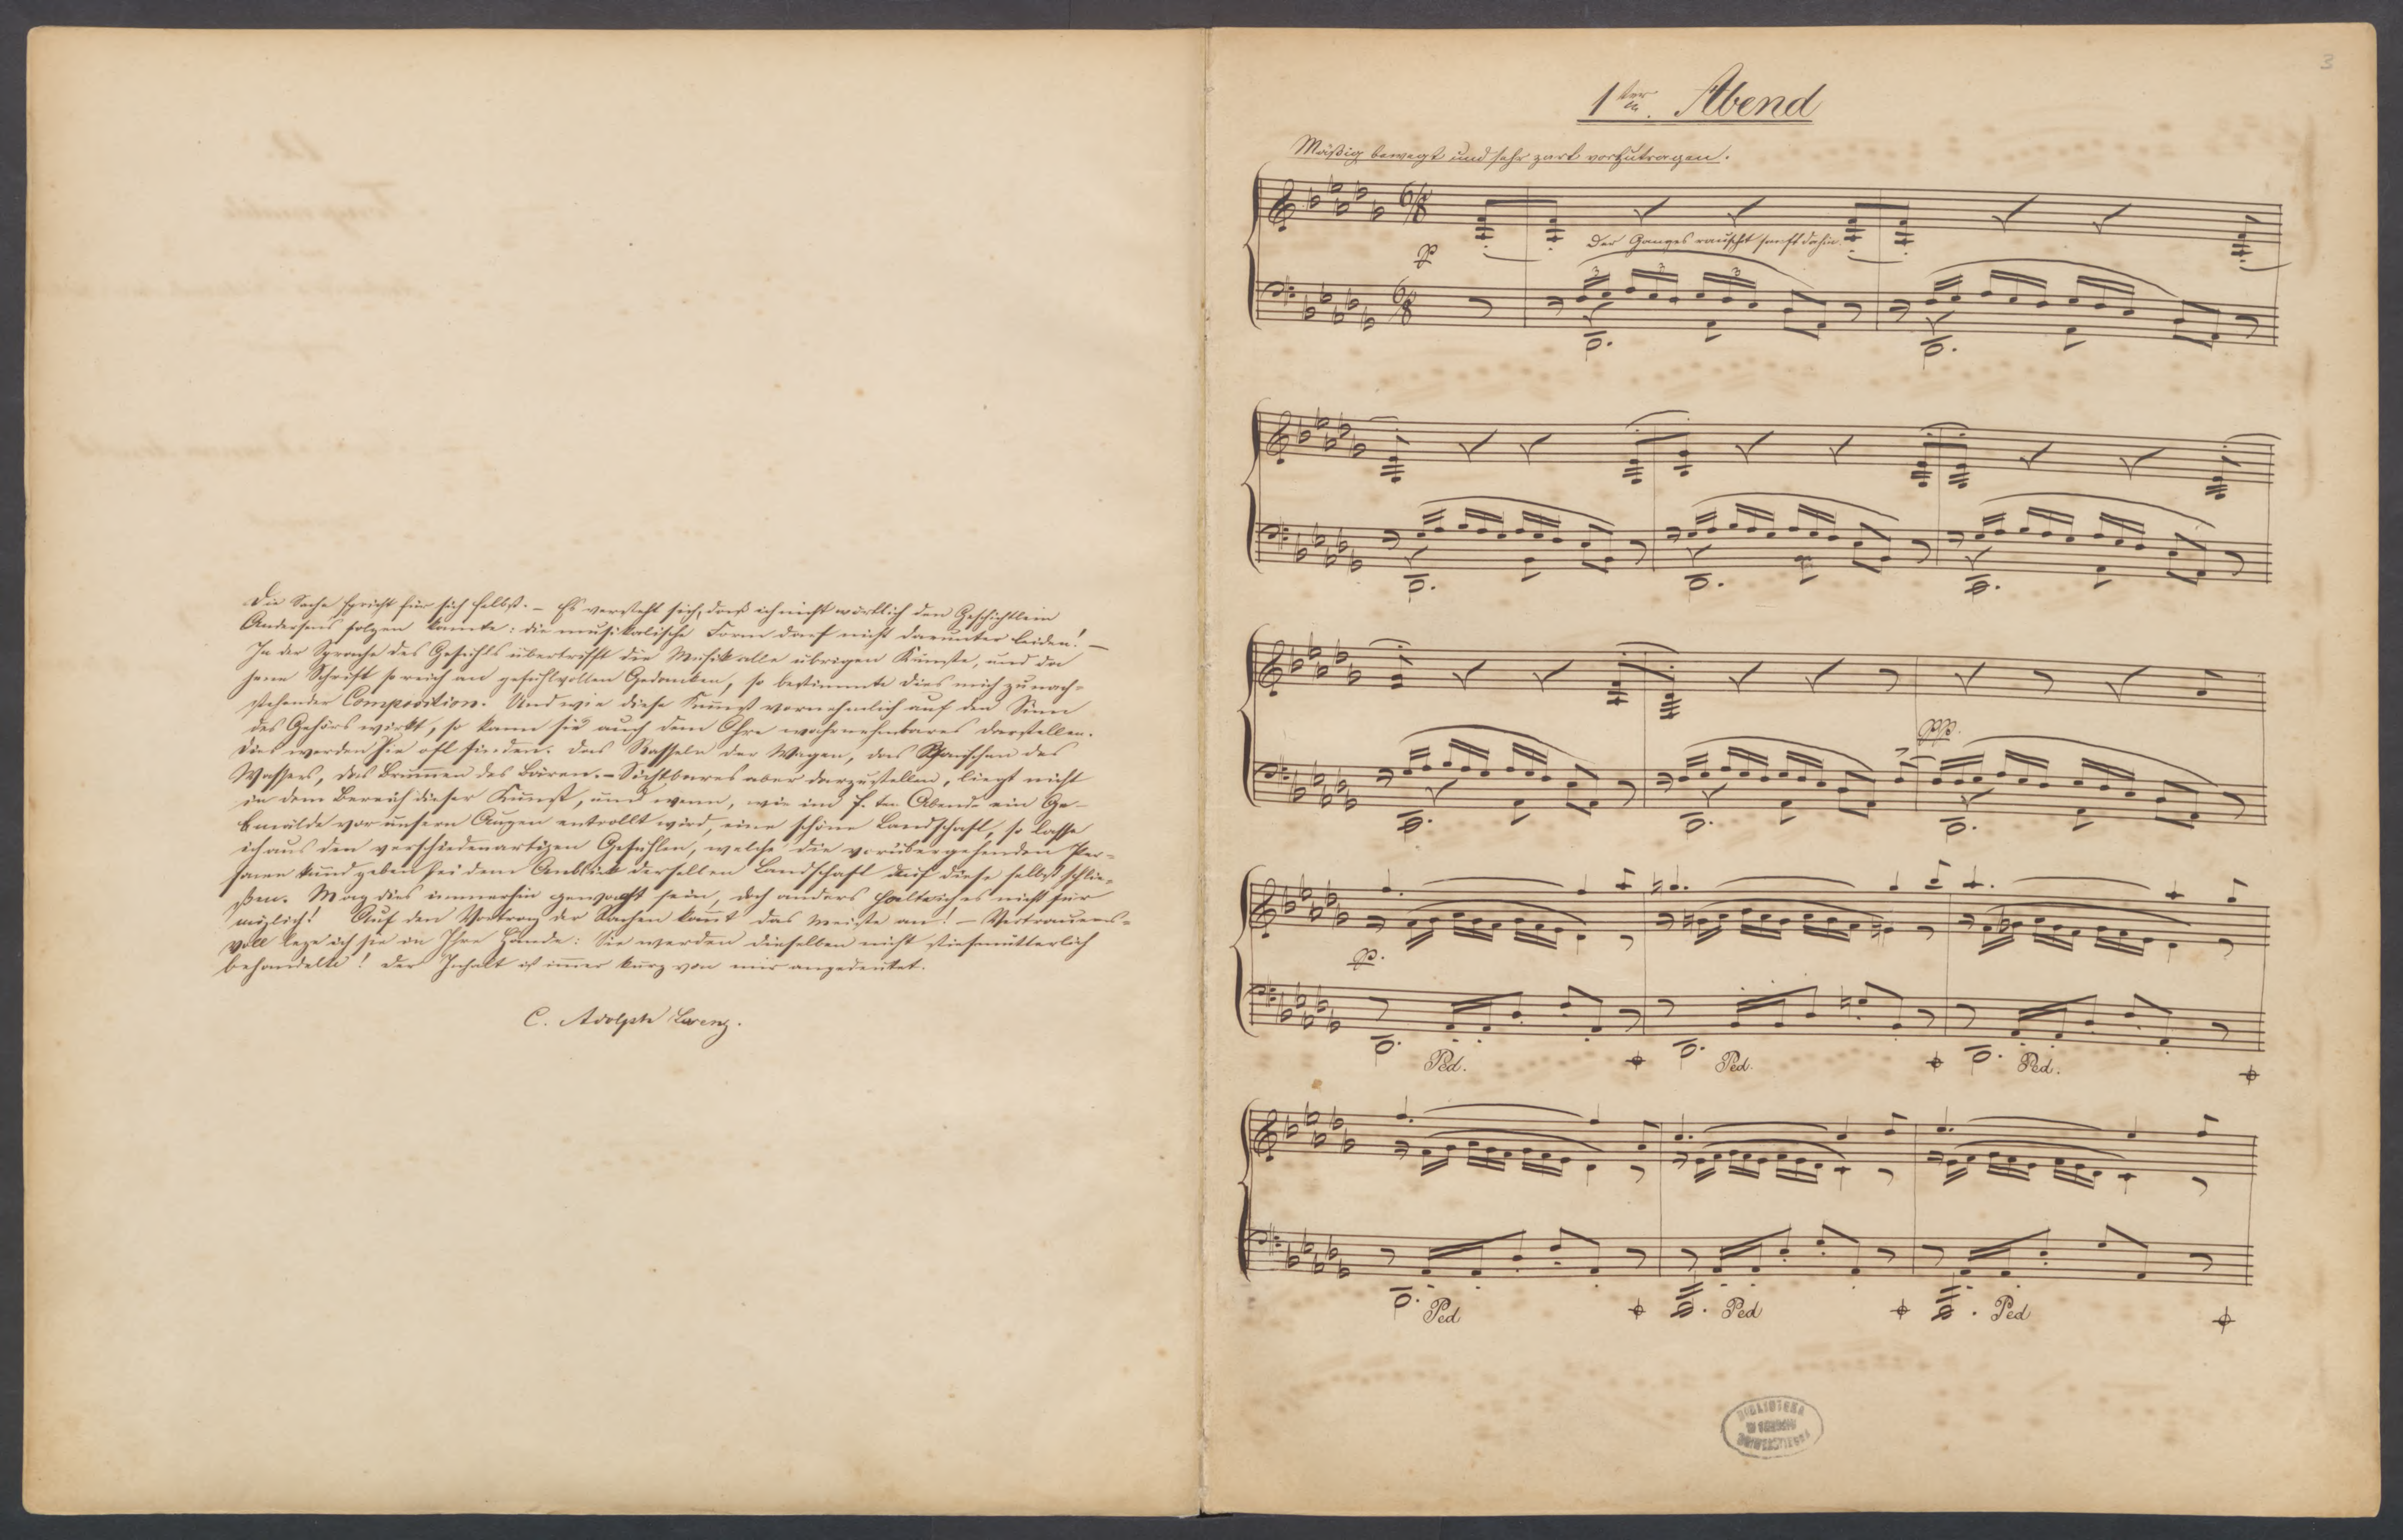 Die Sache spricht für sich selbst. – Es versteht sich, daß ich nicht wörtlich den Geschichtlein
Andersens folgen konnte: die musikalische Form darf nicht darunter leiden! –
In der Sprache des Gefühls übertrifft die Musik alle übrigen Künste, und da
jene Schrift so reich an gefühlvollen Gedanken, so bestimmte dies mich zu nach=
stehender Composition. Und wie diese Kunst vornehmlich auf den Sinn
des Gehörs wirkt, so kann sie auch dem Ohre wahrnehmbares darstellen.
Dies werden Sie oft finden. das Rasseln der Wagen, das Rauschen des
Wassers, das Brummen des Bären. – Sichtbares aber darzustellen, liegt nicht
in dem Bereich dieser Kunst, und wenn, wie im ten Abende ein Ge-
mälde vor unsern Augen entrollt wird, eine schöne Landschaft, so lasse
ich aus den verschiedenartigen Gefühlen, welche die vorübergehenden Per=
sonen kund geben bei dem Anblick derselben Landschaft auf diese selbst schlie=
ßen. Mag dies immerhin gewagt sein, doch anders halte ich es nicht für
möglich! Auf den Vortrag der Sachen kommt das meiste an! – Vertrauens=
voll lege ich sie in Ihre Hände: Sie werden dieselben nicht stiefmütterlich
behandeln! Der Inhalt ist immer kurz von mir angedeutet.
C. Adolph Lorenz.
3
1ter Abend
Mäßig bewegt und sehr zart vorzutragen.
6/8
p
Der Ganges rauscht sanft dahin.
3 3 3
6/8
pp.
p.
Ped. Ped. Ped.
Ped Ped Ped
BIBLIOTEKA